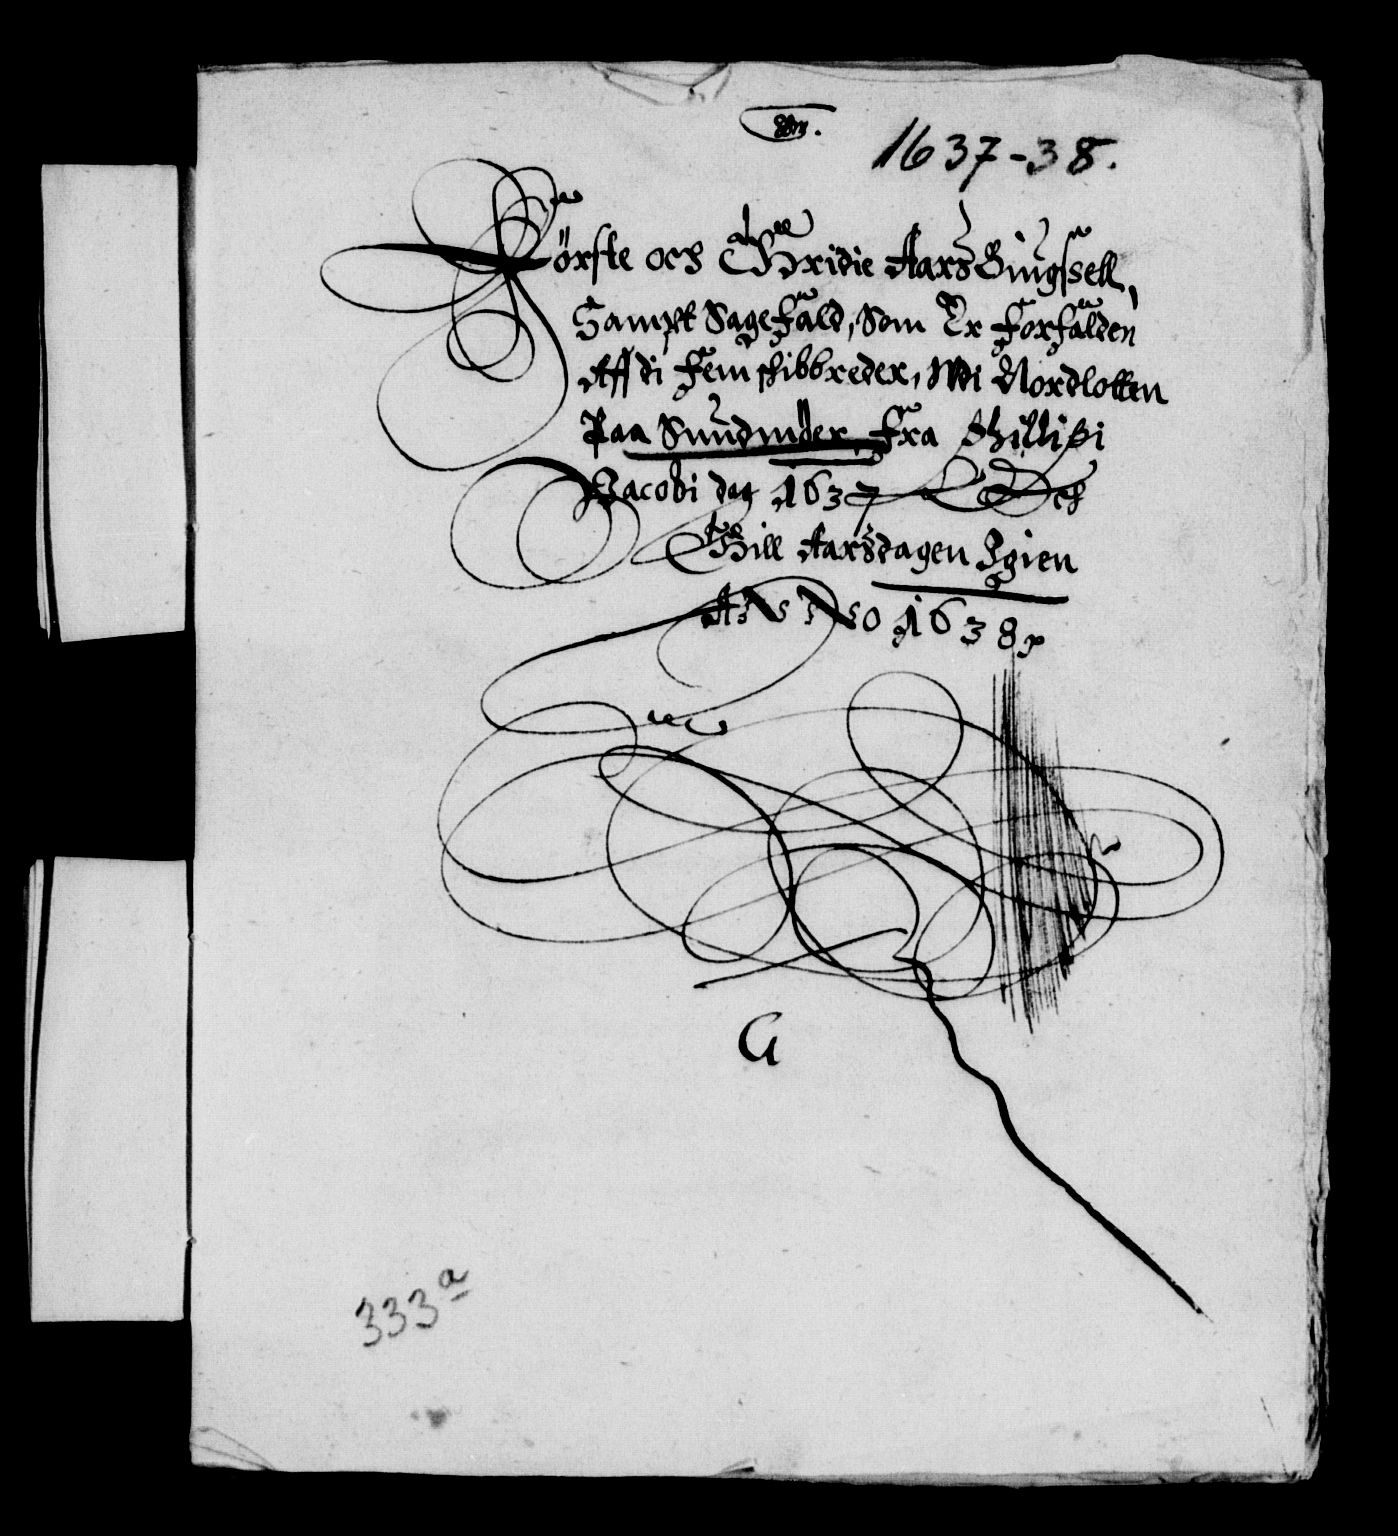 1637-38.
Förste och Thridie Aars Bÿgsell,
Sampt Sagefald, Som Er Forfalden
Aff di Fem schibbreder, Wdi Nordlotten
Paa Sundmöer, Fra Phillipi
Jacobi dag 1637 Och
Thill Aarsdagen Igien
Anno 1638
G
333a